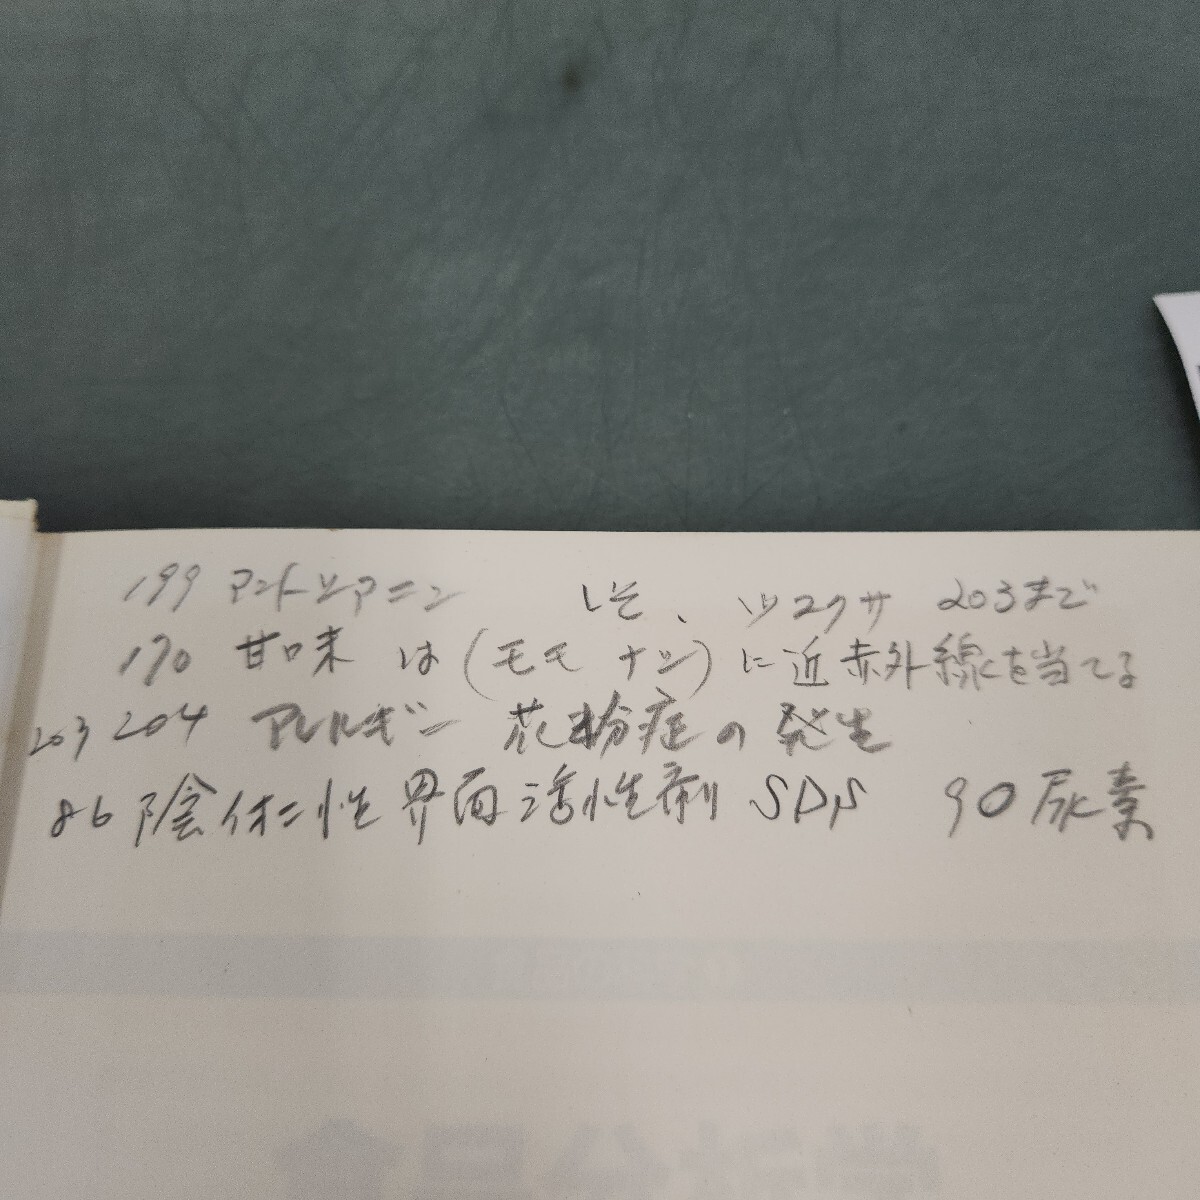 199 アントシアニン しそ、ツユクサ 203まで
170 甘味は(モモ ナシ)に近赤外線を当てる
203 204 アレルギン 花粉症の発生
86 陰イオン性界面活性剤 SDS 90 尿素